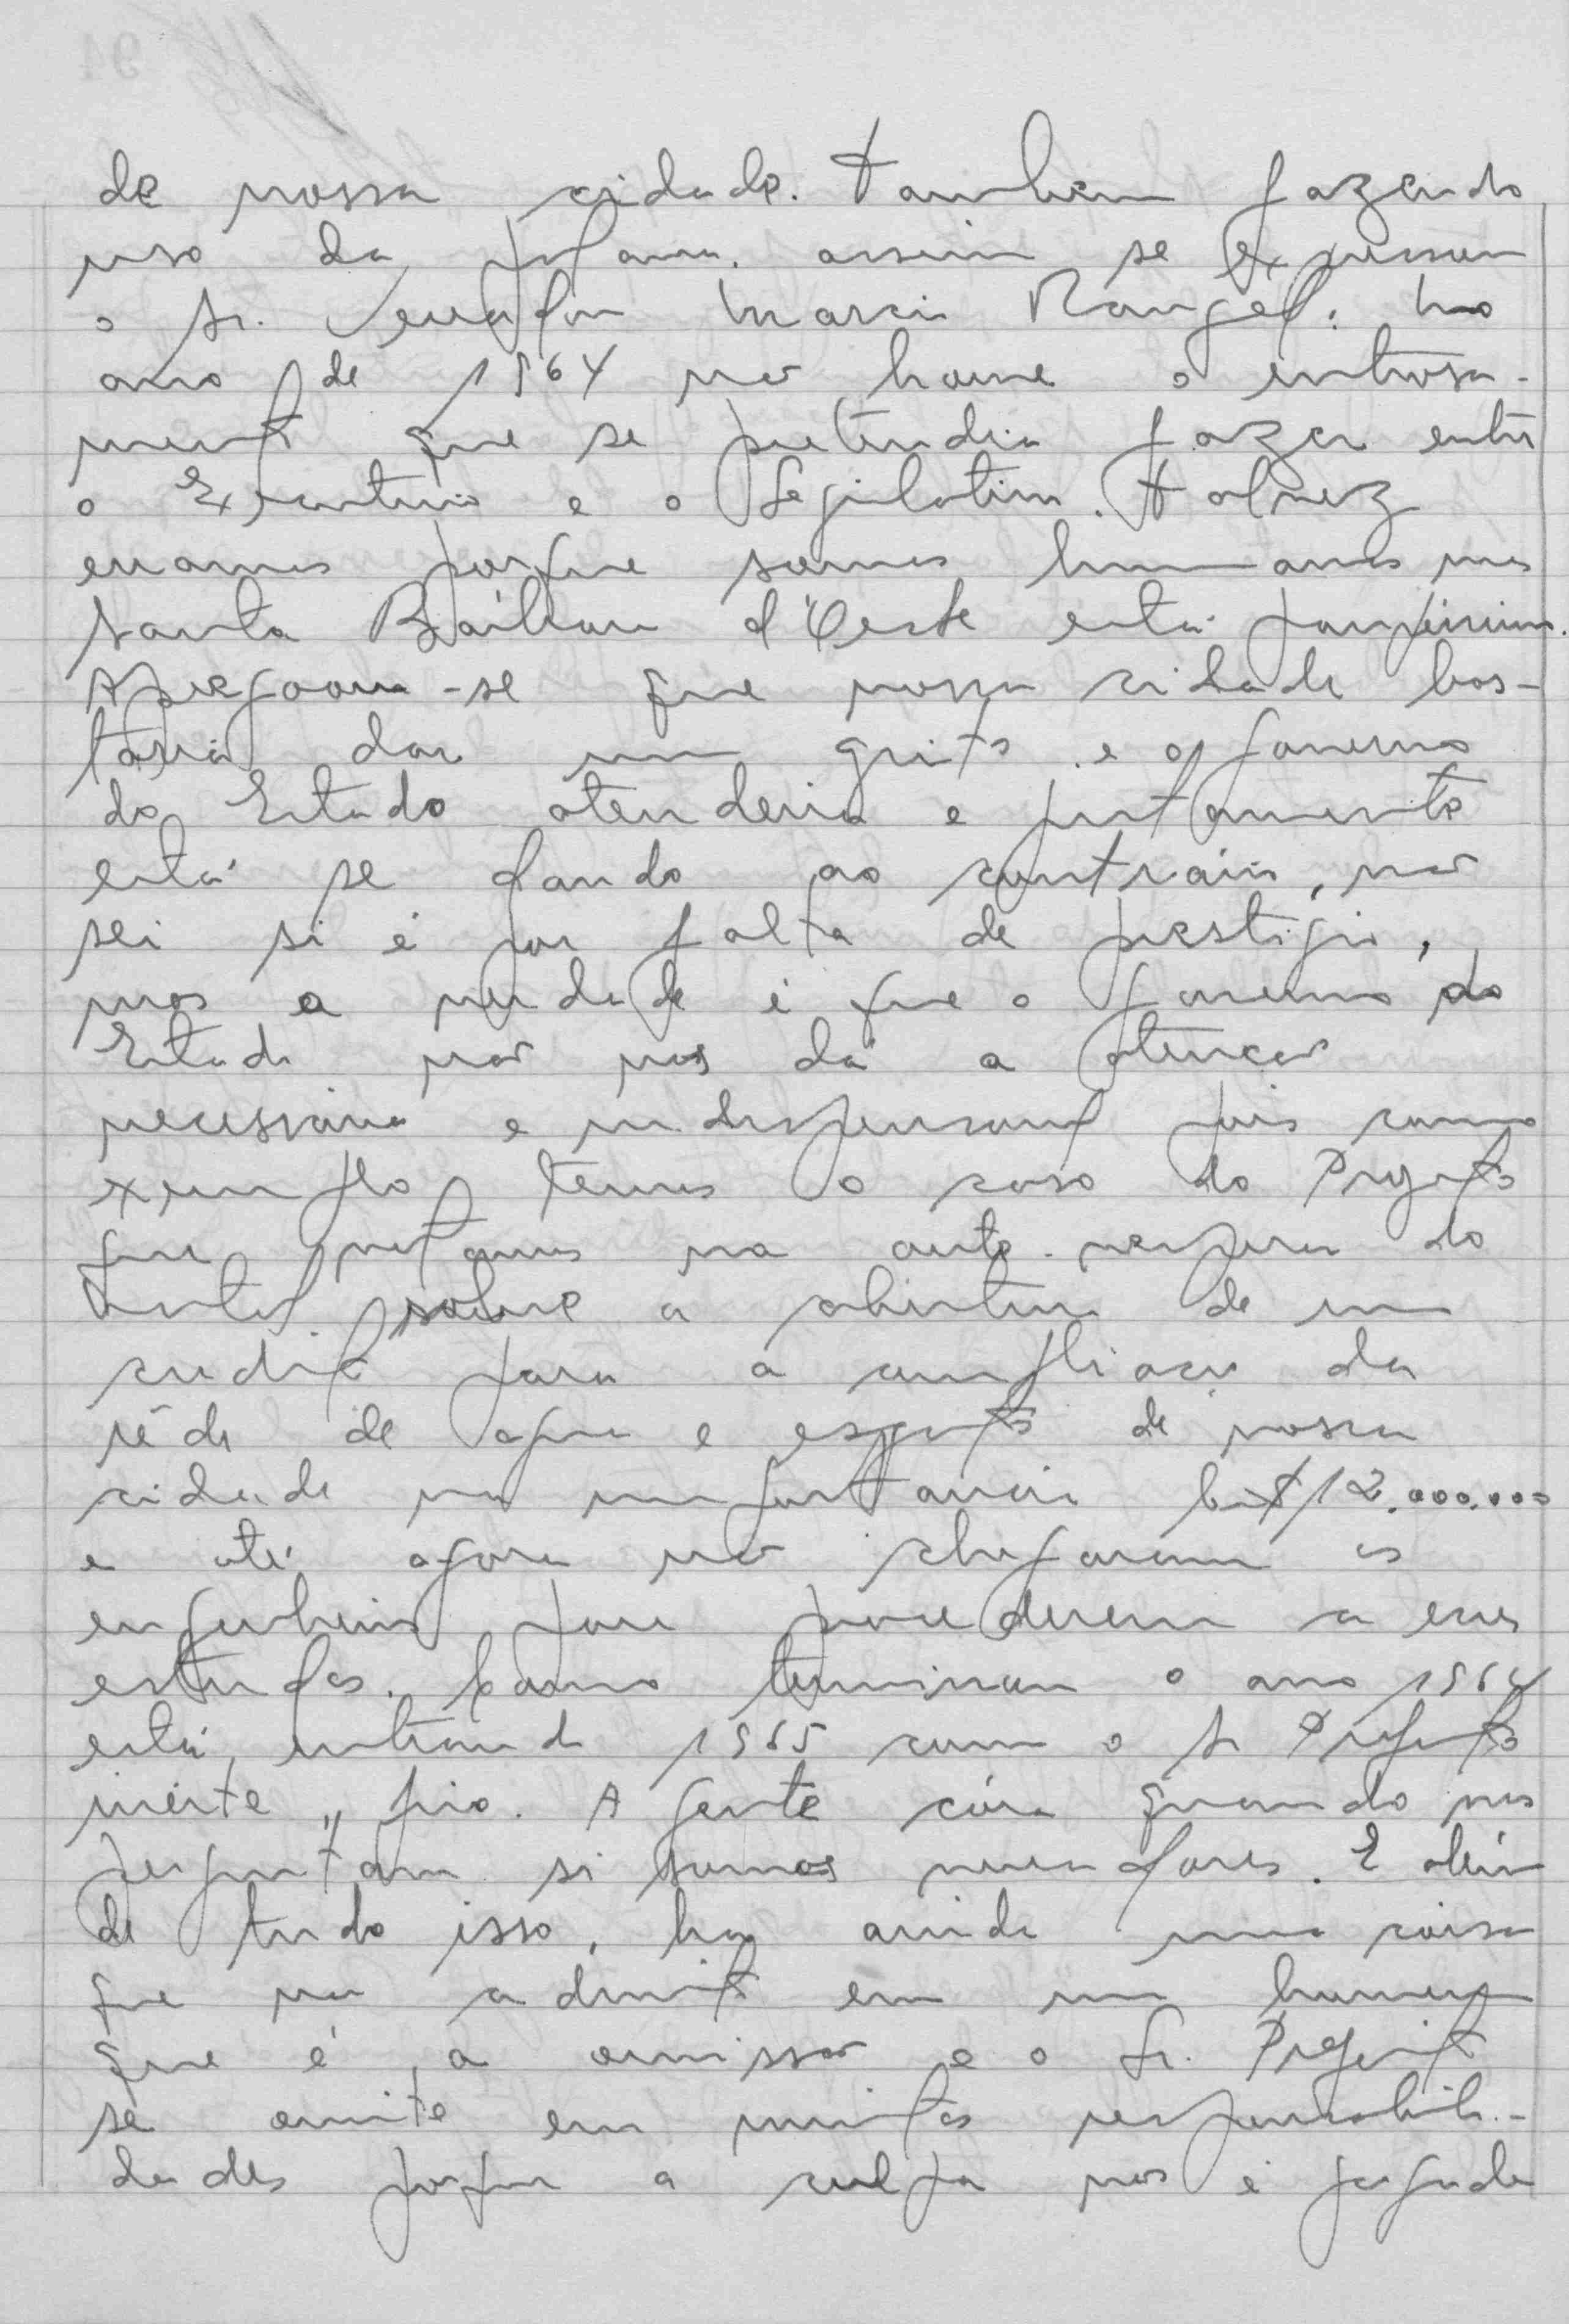 de nossa cidade. Tambem fazendo
uso da palavra, assim se expressou
o Sr. Vereador Marcio Rangel: No
ano de 1964 não houve o entrosa-
mento que se pretendia fazer entre
o Executivo e o Legislativo. Talvez
erramos porque somos humanos mas
Santa Bárbara d'Oeste está
Apregoava-se que nossa cidade bas-
taria dar um grito e o governo
do Estado atenderia e justamente
está se dando ao contrário, não
sei si é por falta de prestigio,
mas a verdade é que o governo do
Estado não nos dá a atenção
necessária e indispensavel pois como
exemplo temos o caso do Projeto
que votamos na ante-vespera do
Natal sobre a abertura de um
credito para a ampliação da
rêde de agua e esgoto de nossa
cidade na importancia Cr$ 12.000.000
e até agora não chegaram os
engenheiros para procederem a esses
estudos. Como terminou o ano 1964
está entrando 1965 com o Sr Prefeito
inérte, frio. A gente córa quando nos
perguntam si somos vereadores. E além
de tudo isso, ha ainda uma coisa
que não admito em um homem
que é a omissão e o Sr. Prefeito
se omite em muitas responsabili-
dades porque a culpa nos é jogada